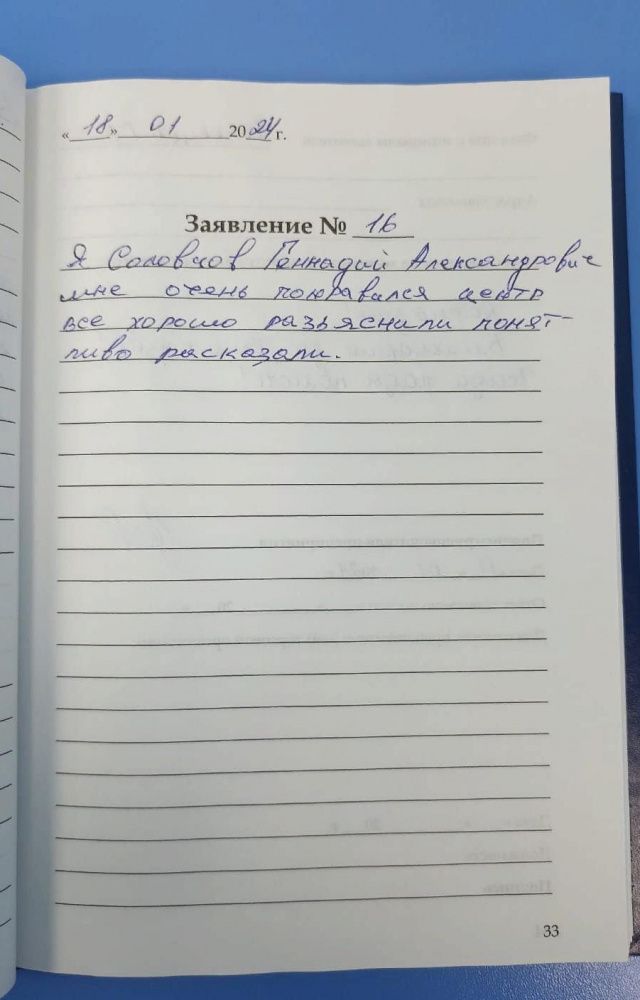 «18» 01 2024 г.
Заявление № 16
Я Соловцов Геннадий Александрович
мне очень понравался центр
все хорошо разьяснили понят-
ливо расказали.
33